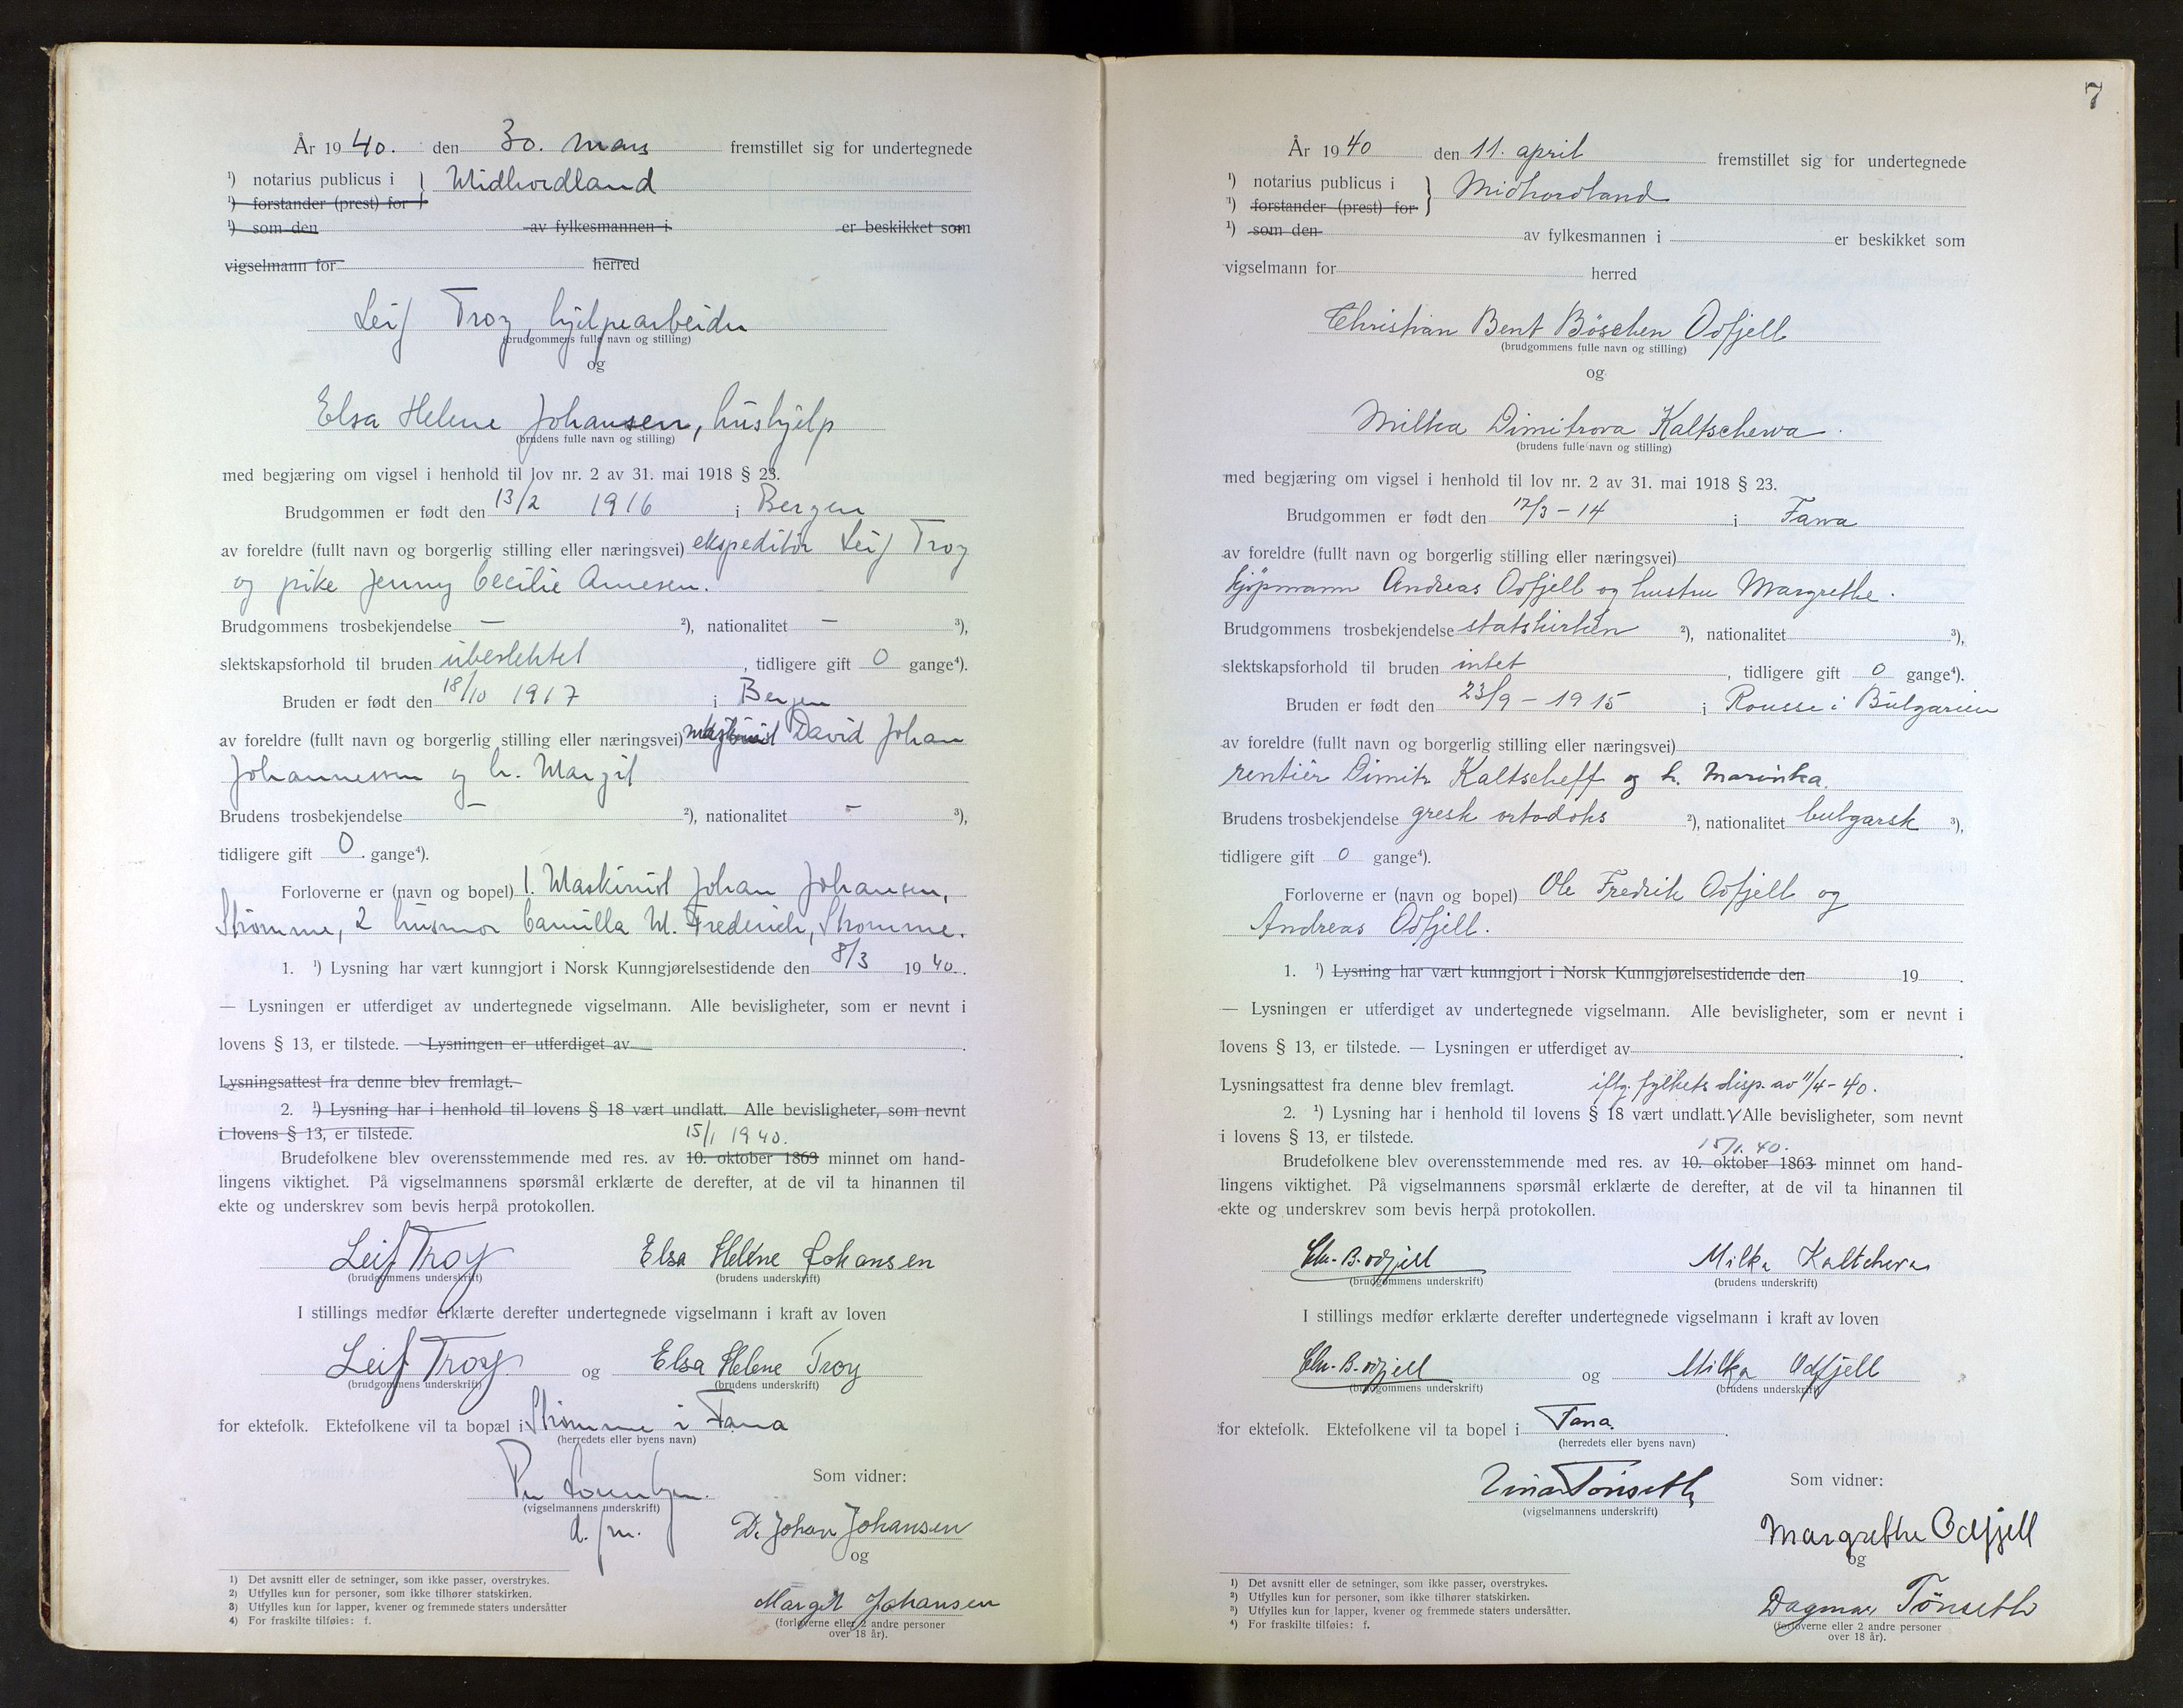 År 19 40. den 30. mars fremstillet sig for undertegnede
¹) notarius publicus i } Midhordland
¹) forstander (prest) for
¹) som den av fylkesmannen i er beskikket som
vigselmann for herred
Leif Troy, hjelpearbeider
(brudgommens fulle navn og stilling)
og
Elsa Helene Johansen, hushjelp
(brudens fulle navn og stilling)
med begjæring om vigsel i henhold til lov nr. 2 av 31. mai 1918 § 23.
Brudgommen er født den 13/2 1916 i Bergen
av foreldre (fullt navn og borgerlig stilling eller næringsvei) ekspeditör Leif Troy
og pike Jenny Cecilie Arnesen.
Brudgommens trosbekjendelse — ²), nationalitet — ³),
slektskapsforhold til bruden ubeslektet, tidligere gift 0 gange⁴).
Bruden er født den 18/10 1917 i Bergen
av foreldre (fullt navn og borgerlig stilling eller næringsvei) David Johan
Johannessen og h. Margit
Brudens trosbekjendelse — ²), nationalitet — ³),
tidligere gift 0 gange⁴).
Forloverne er (navn og bopel) 1. Maskinist Johan Johansen,
Strömme, 2 husmor Camilla M. Frederich, Strömme.
1. ¹) Lysning har vært kunngjort i Norsk Kunngjørelsestidende den 8/3 19 40.
— Lysningen er utferdiget av undertegnede vigselmann. Alle bevisligheter, som er nevnt i
lovens § 13, er tilstede. — Lysningen er utferdiget av
Lysningsattest fra denne blev fremlagt.
2. ¹) Lysning har i henhold til lovens § 18 vært undlatt. Alle bevisligheter, som nevnt
i lovens § 13, er tilstede. 15/1 1940.
Brudefolkene blev overensstemmende med res. av 10. oktober 1863 minnet om hand-
lingens viktighet. På vigselmannens spørsmål erklærte de derefter, at de vil ta hinannen til
ekte og underskrev som bevis herpå protokollen.
Leif Troy Elsa Helene Johansen
(brudgommens underskrift) (brudens underskrift)
I stillings medfør erklærte derefter undertegnede vigselmann i kraft av loven
Leif Troy og Elsa Helene Troy
(brudgommens underskrift) (brudens underskrift)
for ektefolk. Ektefolkene vil ta bopæl i Strömme i Fana
(herredets eller byens navn)
Som vidner:
(vigselmannens underskrift)
d. fm.
D. Johan Johansen
og
Margit Johansen
(forloverne eller 2 andre personer
over 18 år).
1) Det avsnitt eller de setninger, som ikke passer, overstrykes.
2) Utfylles kun for personer, som ikke tilhører statskirken.
3) Utfylles kun for lapper, kvener og fremmede staters undersåtter
4) For fraskilte tilføies: f.
7
År 19 40 den 11. april fremstillet sig for undertegnede
¹) notarius publicus i } Midhordland
¹) forstander (prest) for
¹) som den av fylkesmannen i er beskikket som
vigselmann for herred
Christian Bent Böschen Odfjell
(brudgommens fulle navn og stilling)
og
Milka Dimitrova Kaltschewa.
(brudens fulle navn og stilling)
med begjæring om vigsel i henhold til lov nr. 2 av 31. mai 1918 § 23.
Brudgommen er født den 12/3 - 14 i Fana
av foreldre (fullt navn og borgerlig stilling eller næringsvei)
kjöpmann Andreas Odfjell og hustru Margrethe.
Brudgommens trosbekjendelse statskirken ²), nationalitet ³),
slektskapsforhold til bruden intet, tidligere gift 0 gange⁴).
Bruden er født den 23/9 - 1915 i Rousse i Bulgarien
av foreldre (fullt navn og borgerlig stilling eller næringsvei)
rentier Dimitr Kaltscheff og h. Marinka.
Brudens trosbekjendelse gresk ortodoks ²), nationalitet bulgarsk ³),
tidligere gift 0 gange⁴).
Forloverne er (navn og bopel) Ole Fredrik Odfjell og
Andreas Odfjell.
1. ¹) Lysning har vært kunngjort i Norsk Kunngjørelsestidende den 19 .
— Lysningen er utferdiget av undertegnede vigselmann. Alle bevisligheter, som er nevnt i
lovens § 13, er tilstede. — Lysningen er utferdiget av .
Lysningsattest fra denne blev fremlagt. iflg. fylkets disp. av 11/4 - 40.
2. ¹) Lysning har i henhold til lovens § 18 vært undlatt. √ Alle bevisligheter, som nevnt
i lovens § 13, er tilstede. 15/1. 40.
Brudefolkene blev overensstemmende med res. av 10. oktober 1863 minnet om hand-
lingens viktighet. På vigselmannens spørsmål erklærte de derefter, at de vil ta hinannen til
ekte og underskrev som bevis herpå protokollen.
Chr. B. Odfjell Milka Kaltcheva
(brudgommens underskrift) (brudens underskrift)
I stillings medfør erklærte derefter undertegnede vigselmann i kraft av loven
Chr. B. Odfjell og Milka Odfjell
(brudgommens underskrift) (brudens underskrift)
for ektefolk. Ektefolkene vil ta bopel i Fana.
(herredets eller byens navn)
Tönseth Som vidner:
(vigselmannens underskrift)
Margrethe Odfjell
og
Dagmar Tönseth
(forloverne eller 2 andre personer
over 18 år).
1) Det avsnitt eller de setninger, som ikke passer, overstrykes.
2) Utfylles kun for personer, som ikke tilhører statskirken.
3) Utfylles kun for lapper, kvener og fremmede staters undersåtter.
4) For fraskilte tilføies: f.